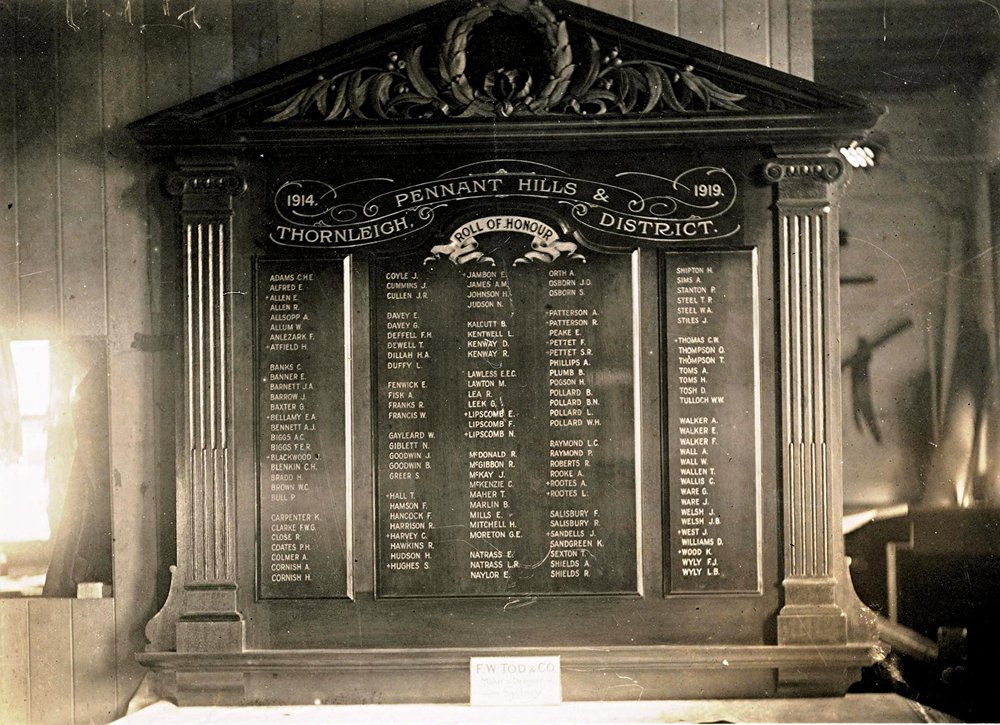 1914. PENNANT HILLS & 1919.
THORNLEIGH, DISTRICT.
ROLL OF HONOUR
ADAMS C.H.E
ALFRED E.
+ALLEN E.
ALLEN R.
ALLSOPP A.
ALLUM W.
ANLEZARK F.
+ATFIELD H.
BANKS C.
BANNER E.
BARNETT J.A.
BARROW J.
BAXTER G.
+BELLAMY E.A.
BENNETT A.J.
BIGGS A.C.
BIGGS F.E.R.
+BLACKWOOD J.
BLENKIN C.H.
BRADD H.
BROWN W.C.
BULL P.
CARPENTER K.
CLARKE F.W.G.
CLOSE R.
COATES P.H.
COLMER A.
CORNISH A.
CORNISH H.
COYLE J.
CUMMINS J.
CULLEN J.R.
DAVEY E.
DAVEY G.
DEFFELL F.H
DEWELL T.
DILLAH H.A.
DUFFY L.
FENWICK E.
FISK A.
FRANKS R.
FRANCIS W.
GAYLEARD W.
GIBLETT N.
GOODWIN J.
GOODWIN B.
GREER S.
+HALL T.
HAMSON F.
HANCOCK F.
HARRISON R.
+HARVEY C.
HAWKINS R.
HUDSON H.
+HUGHES S.
+JAMBON E.
JAMES A.M.
JOHNSON H.
JUDSON N.
KALCUTT B.
KENTWELL L.
KENWAY D.
KENWAY R.
LAWLESS E.E.C.
LAWTON M.
LEA R.
LEEK G.
+LIPSCOMB E.
LIPSCOMB F.
+LIPSCOMB N.
McDONALD R.
McGIBBON R.
McKAY J.
McKENZIE C.
MAHER T.
MARLIN B.
MILLS E.
MITCHELL H.
MORETON G.E.
NATRASS E.
NATRASS L.R.
NAYLOR E.
ORTH A.
OSBORN J.O.
OSBORN S.
+PATTERSON A.
+PATTERSON R.
PEAKE E.
+PETTET F.
+PETTET S.R.
PHILLIPS A.
PLUMB B.
POGSON H.
POLLARD B.
POLLARD B.N.
POLLARD L.
POLLARD W.H.
RAYMOND L.C.
RAYMOND P.
ROBERTS R.
ROOKE A.
+ROOTES A.
+ROOTES L.
SALISBURY F.
SALISBURY R.
+SANDELLS J.
SANDGREEN K.
SEXTON T.
SHIELDS A.
SHIELDS R.
SHIPTON H.
SIMS A.
STANTON P.
STEEL T.P.
STEEL W.A.
STILES J.
+THOMAS C.W.
THOMPSON O.
THOMPSON T.
TOMS A.
TOMS H.
TOSH D.
TULLOCH W.W.
WALKER A.
WALKER E.
WALKER F.
WALL A.
WALL W.
WALLEN T.
WALLIS C.
WARE G.
WARE J.
WELSH J.
WELSH J.B.
+WEST J.
WILLIAMS D.
+WOOD K.
WYLY F.J.
WYLY L.B.
F.W. TOD & CO